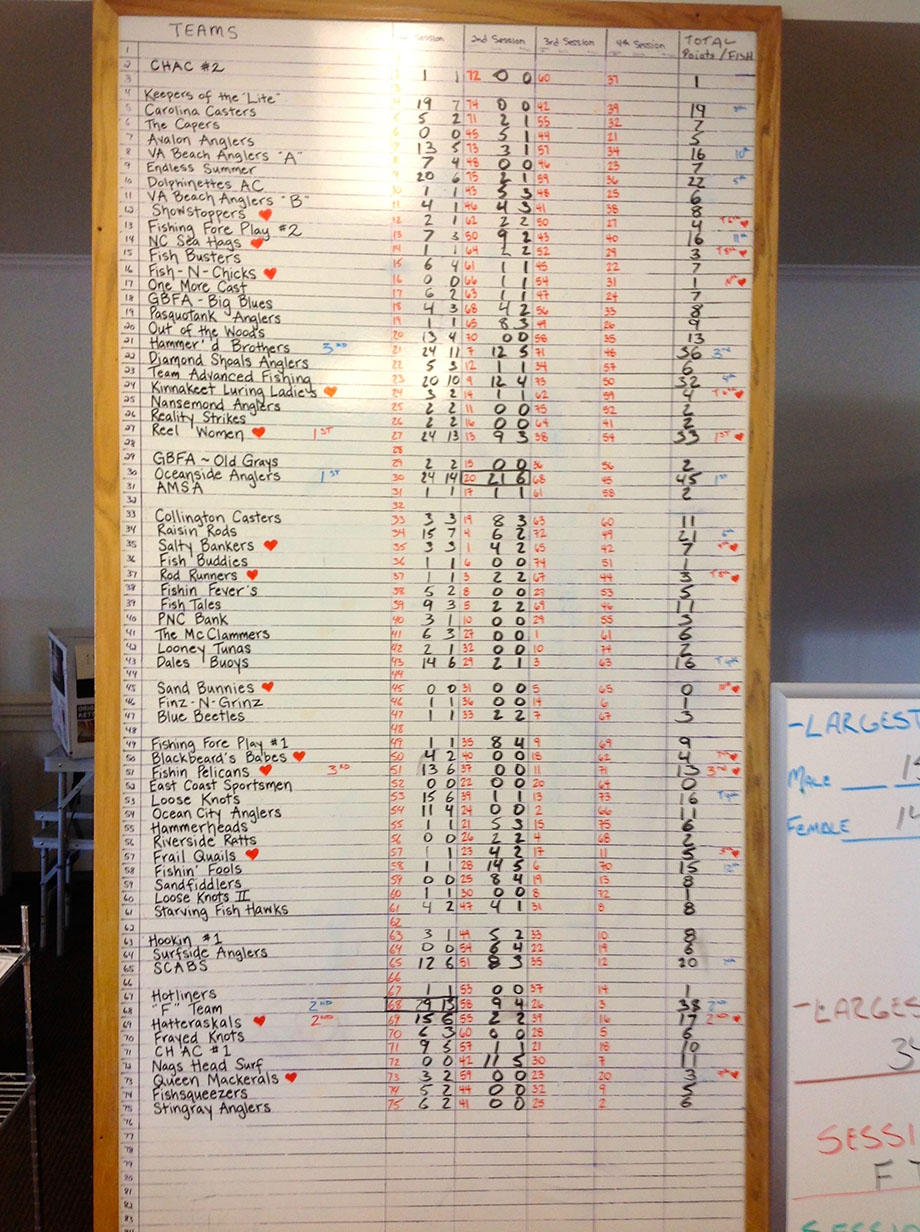 TEAMS Session 2nd Session 3rd Session 4th Session TOTAL Points/FISH
1
2 CHAC #2
3 1 1 72 0 0 60 37 1
4 Keepers of the "Lite" 19 7 74 0 0 42 39 19
5 Carolina Casters 5 2 71 2 1 55 32 7
6 The Capers 0 0 45 5 1 49 21 5
7 Avalon Anglers 13 5 73 3 1 57 34 16 10th
8 VA Beach Anglers "A" 7 4 48 0 0 46 23 7
9 Endless Summer 20 6 75 2 1 59 36 22 5th
10 Dolphinettes AC 1 1 43 5 3 48 25 6
11 VA Beach Anglers "B" 11 4 1 46 4 3 41 38 8
12 Showstoppers ♥ 12 2 1 62 2 2 50 27 4 ♥
13 Fishing Fore Play #2 13 7 3 50 9 2 43 40 16 11th
14 NC Sea Hags ♥ 14 1 1 64 2 2 52 29 3 ♥
15 Fish Busters 15 6 4 61 1 1 45 22 7
16 Fish-N-Chicks ♥ 16 0 0 66 1 1 54 31 1 ♥
17 One More Cast 17 6 2 63 1 1 47 24 7
18 GBFA - Big Blues 18 4 3 68 4 2 56 33 8
19 Pasquotank Anglers 19 1 1 65 8 3 49 26 9
20 Out of the Woods 20 13 4 70 0 0 58 35 13
21 Hammer'd Brothers 3RD 21 24 11 7 12 5 71 48 36 3rd
22 Diamond Shoals Anglers 22 5 3 12 1 1 34 57 6
23 Team Advanced Fishing 23 20 10 9 12 4 73 50 32
24 Kinnakeet Luring Ladies ♥ 24 3 2 14 1 1 62 59 4 ♥
25 Nansemond Anglers 25 2 2 11 0 0 75 52 2
26 Reality Strikes 26 2 2 16 0 0 64 41 2
27 Reel Women ♥ 1ST 27 24 13 13 9 3 38 54 33 1ST ♥
28 28
29 GBFA ~ Old Grays 29 2 2 15 0 0 36 56 2
30 Oceanside Anglers 1ST 30 24 14 20 21 6 68 45 45 1st
31 AMSA 31 1 1 17 1 1 61 58 2
32 32
33 Collington Casters 33 3 3 19 8 3 63 60 11
34 Raisin' Rods 34 15 7 4 6 2 72 49 21 6th
35 Salty Bankers ♥ 35 3 3 1 4 2 65 42 7 ♥
36 Fish Buddies 36 1 1 6 0 0 74 51 1
37 Rod Runners ♥ 37 1 1 3 2 2 67 44 3 ♥
38 Fishin Fever's 38 5 2 8 0 0 27 53 5
39 Fish Tales 39 9 3 5 2 2 69 46 11
40 PNC Bank 40 3 1 10 0 0 29 55 3
41 The McClammers 41 6 3 27 0 0 1 61 6
42 Looney Tunas 42 2 1 32 0 0 10 74 2
43 Dales' Buoys 43 14 6 29 2 1 3 63 16
44 44
45 Sand Bunnies ♥ 45 0 0 31 0 0 5 65 0 ♥
46 Finz-N-Grinz 46 1 1 36 0 0 14 6 1
47 Blue Beetles 47 1 1 33 2 2 7 67 3
48 48
49 Fishing Fore Play #1 49 1 1 35 8 4 9 69 9
50 Blackbeard's Babes ♥ 50 4 2 40 0 0 18 62 4 ♥
51 Fishin Pelicans ♥ 3RD 51 13 6 37 0 0 11 71 13 3RD ♥
52 East Coast Sportsmen 52 0 0 22 0 0 20 64 0
53 Loose Knots 53 15 6 39 1 1 13 73 16
54 Ocean City Anglers 54 11 4 24 0 0 2 66 11
55 Hammerheads 55 1 1 21 5 3 15 75 6
56 Riverside Ratts 56 0 0 26 2 2 4 68 2
57 Frail Quails ♥ 57 1 1 23 4 2 17 11 5 ♥
58 Fishin' Fools 58 1 1 28 14 5 6 70 15 12th
59 Sandfiddlers 59 0 0 25 8 4 19 13 8
60 Loose Knots II 60 1 1 30 0 0 8 72 1
61 Starving Fish Hawks 61 4 2 47 4 1 31 8 8
62 62
63 Hookin #1 63 3 1 49 5 2 33 10 8
64 Surfside Anglers 64 0 0 54 6 4 22 19 6
65 SCABS 65 12 6 51 8 3 35 12 20 7th
66 66
67 Hotliners 67 1 1 53 0 0 37 14 1
68 "F" Team 2ND 68 29 13 58 9 4 26 3 38 2ND
69 Hatteraskals ♥ 2ND 69 15 6 55 2 2 39 16 17 2ND ♥
70 Frayed Knots 70 6 3 60 0 0 28 5 6
71 CHAC #1 71 9 5 57 1 1 21 18 10
72 Nags Head Surf 72 0 0 42 11 5 30 7 11
73 Queen Mackerals ♥ 73 3 2 59 0 0 23 20 3 ♥
74 Fishsqueezers 74 5 2 44 0 0 32 9 5
75 Stingray Anglers 75 6 2 41 0 0 25 2 6
76
77
78
79
80
81
82
83
-LARGEST
MALE 1
FEMALE 14
-LARGES
34
SESSI
F
SESSION